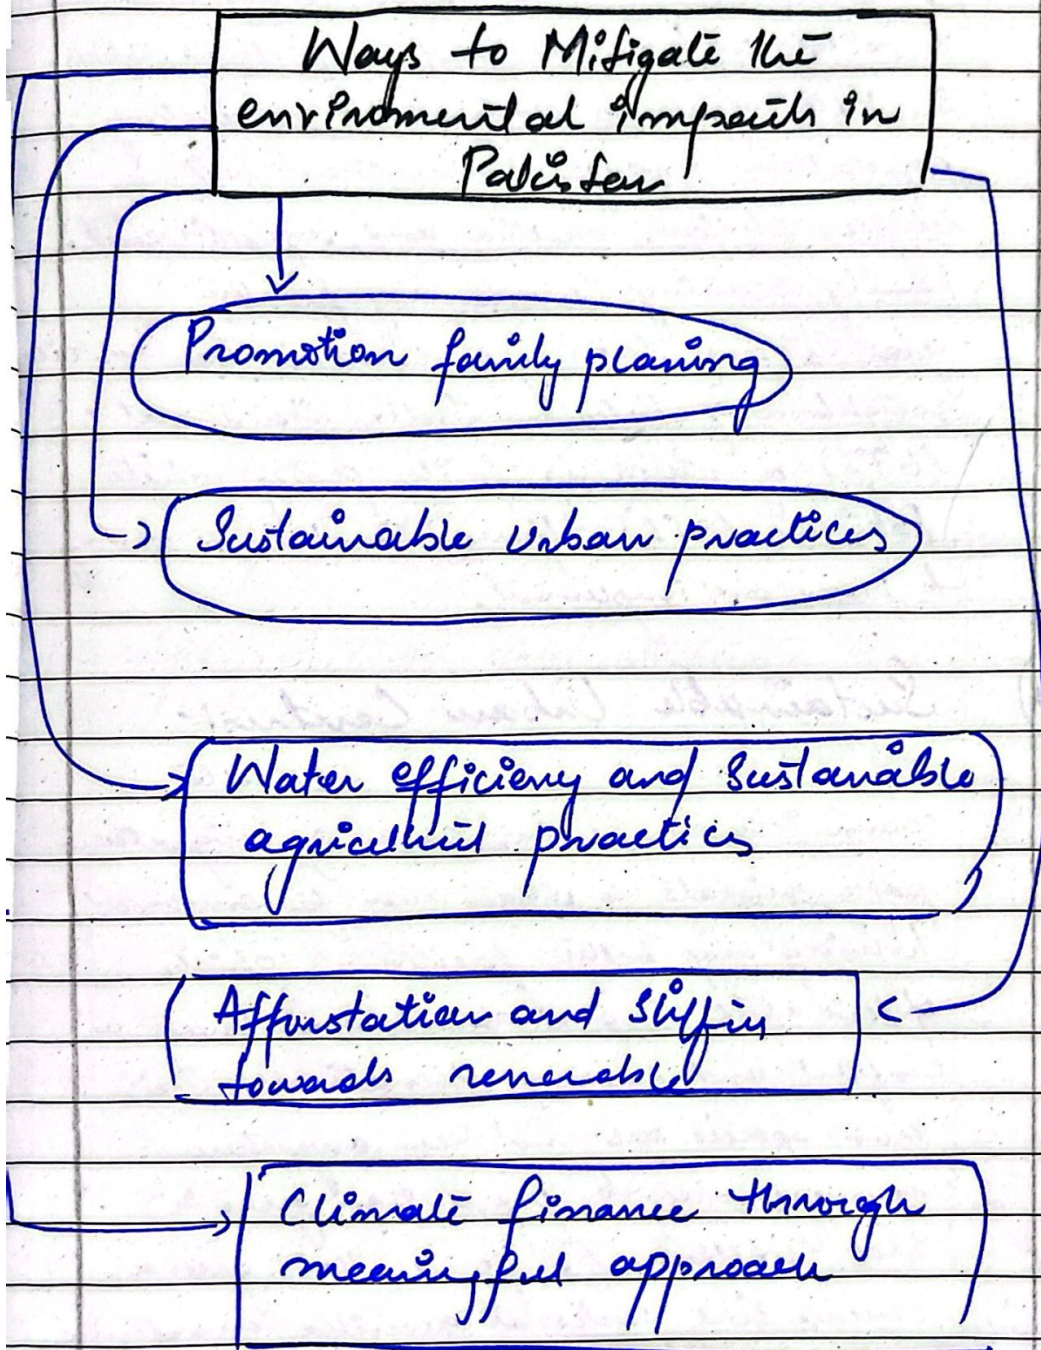 Ways to Mitigate the
enviromental impacts in
Pakistan
Promotion family planing
Sustainable Urban practices
Water efficieny and Sustanable
agricultul practics
Afforstation and
towards renewable
Climate finance through
meaningful approach